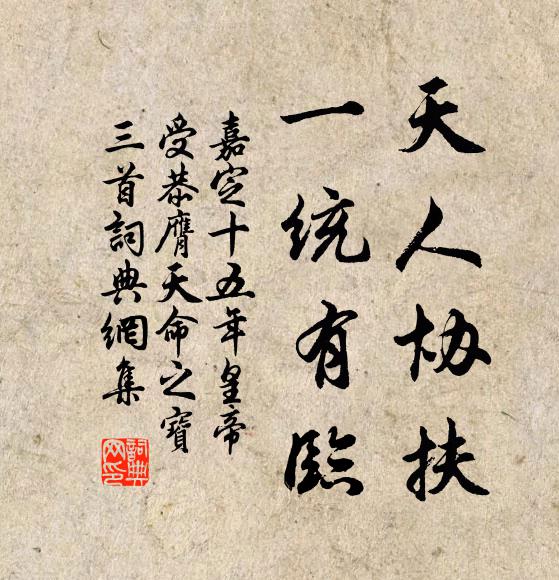 天人协扶
一统有臨
嘉定十五年皇帝
受恭膺天命之寶
三首詞典網集
詞典网印